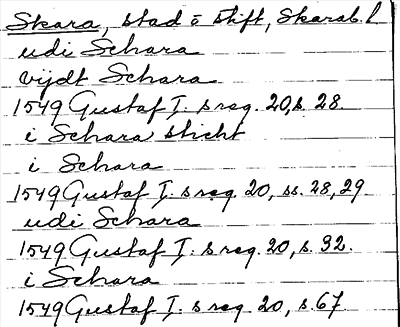 Skara, stad o stift, Skarab. l
udi Schara
vijdt Schara
1549 Gustaf I:s reg. 20, s. 28.
i Schara sticht
i Schara
1549 Gustaf I:s reg. 20, ss. 28, 29
udi Schara
1549 Gustaf I:s reg. 20, s. 32.
i Schara
1549 Gustaf I:s reg. 20, s. 67